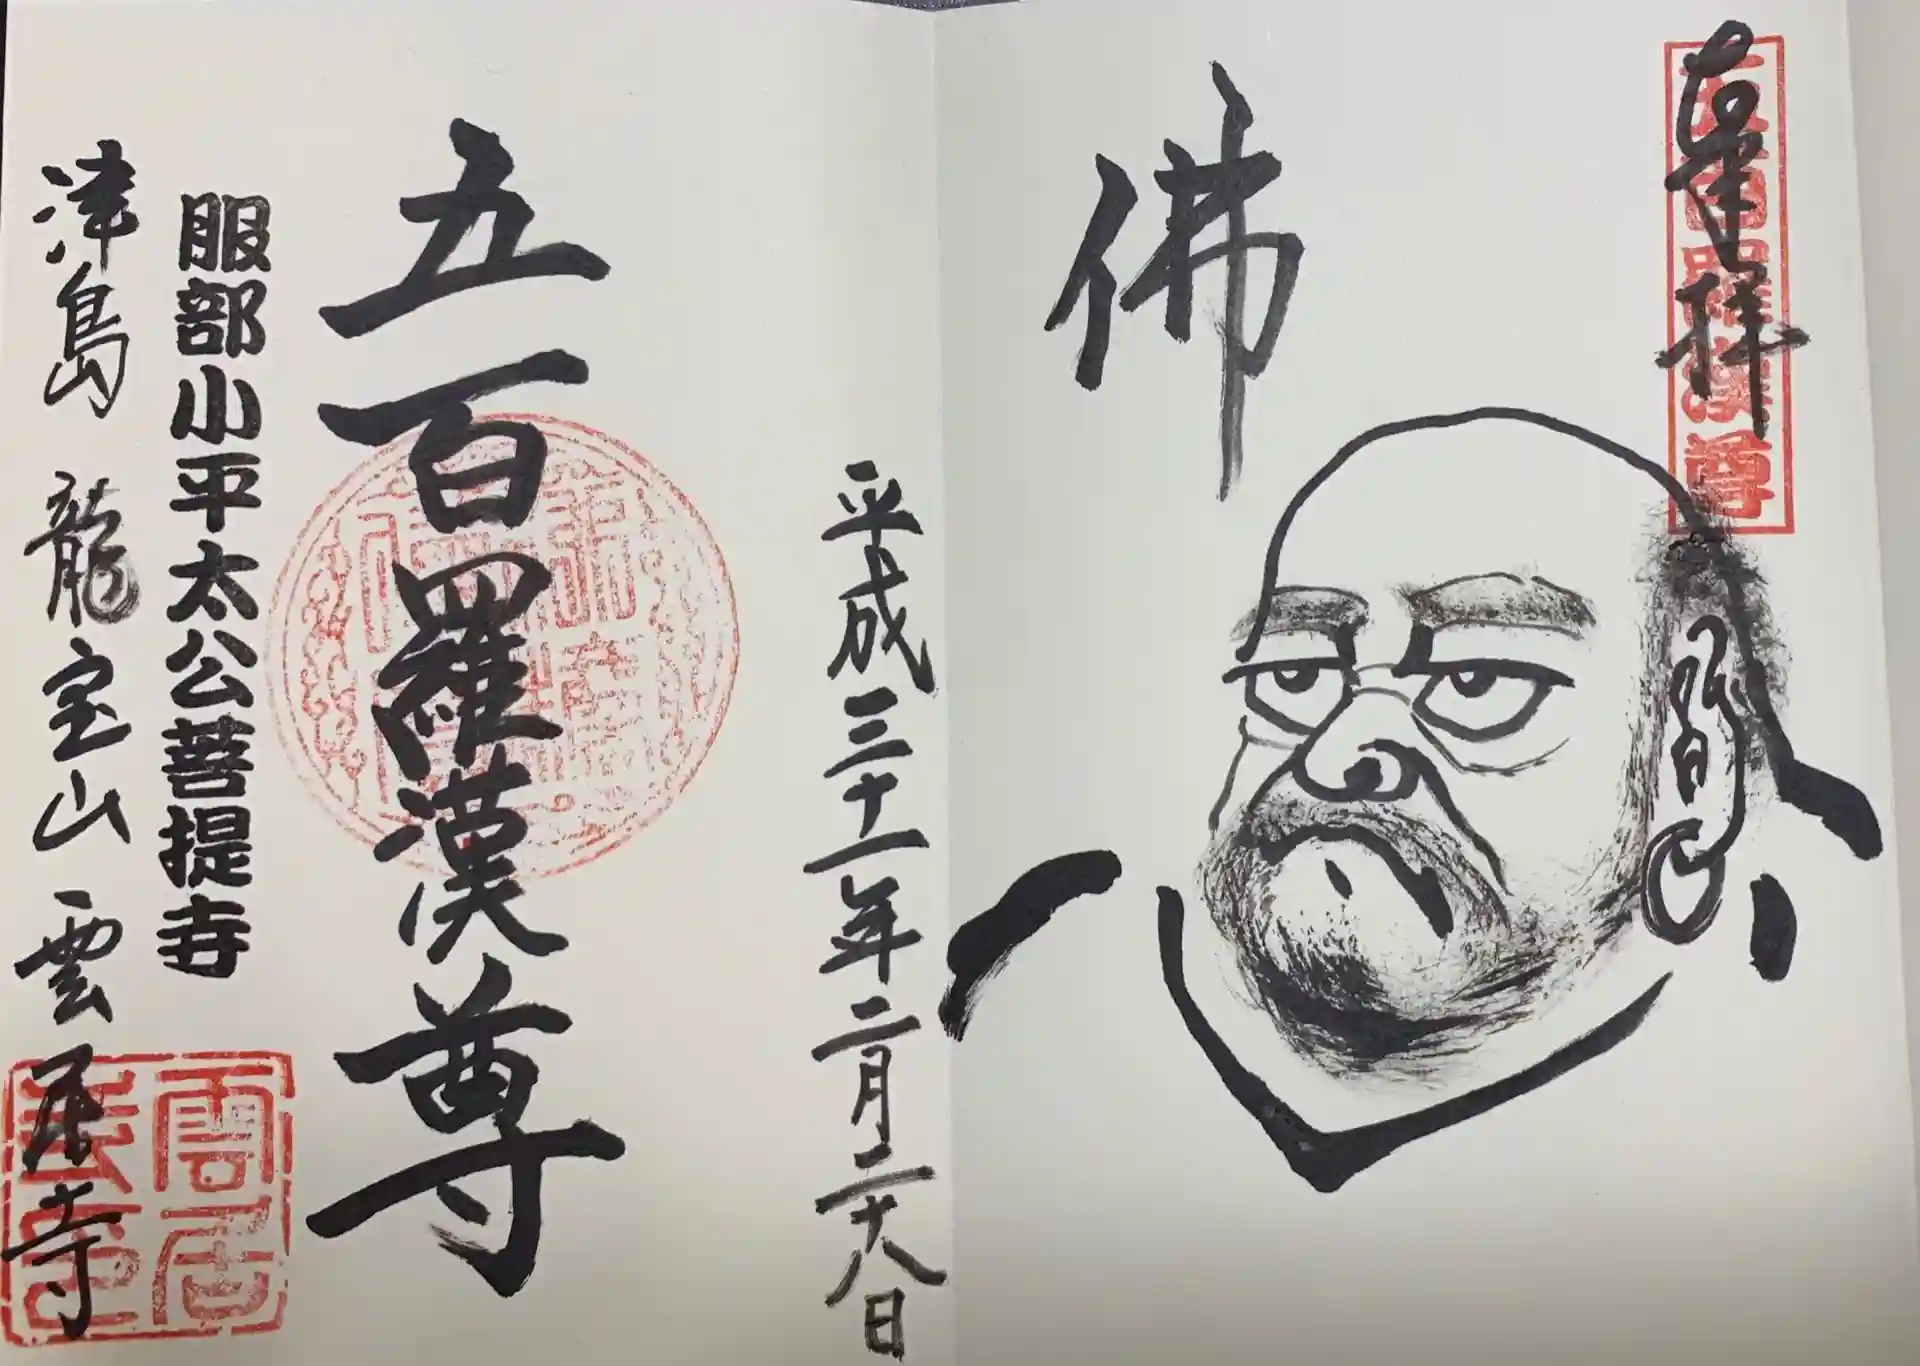 奉拝
五百羅漢尊
佛
平成三十一年二月二十八日
五百羅漢尊
服部小平太公菩提寺
津島 龍宝山 雲居寺